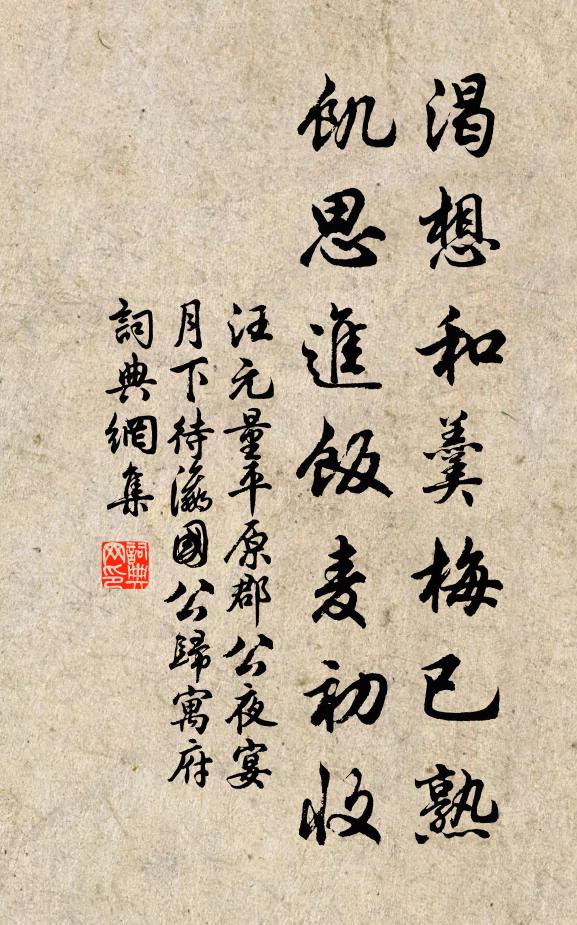 渴想和羹梅已熟
飢思進飯麦初收
汪元量平原郡公夜宴
月下待瀛國公歸寓府
詞典網集
詞典网印